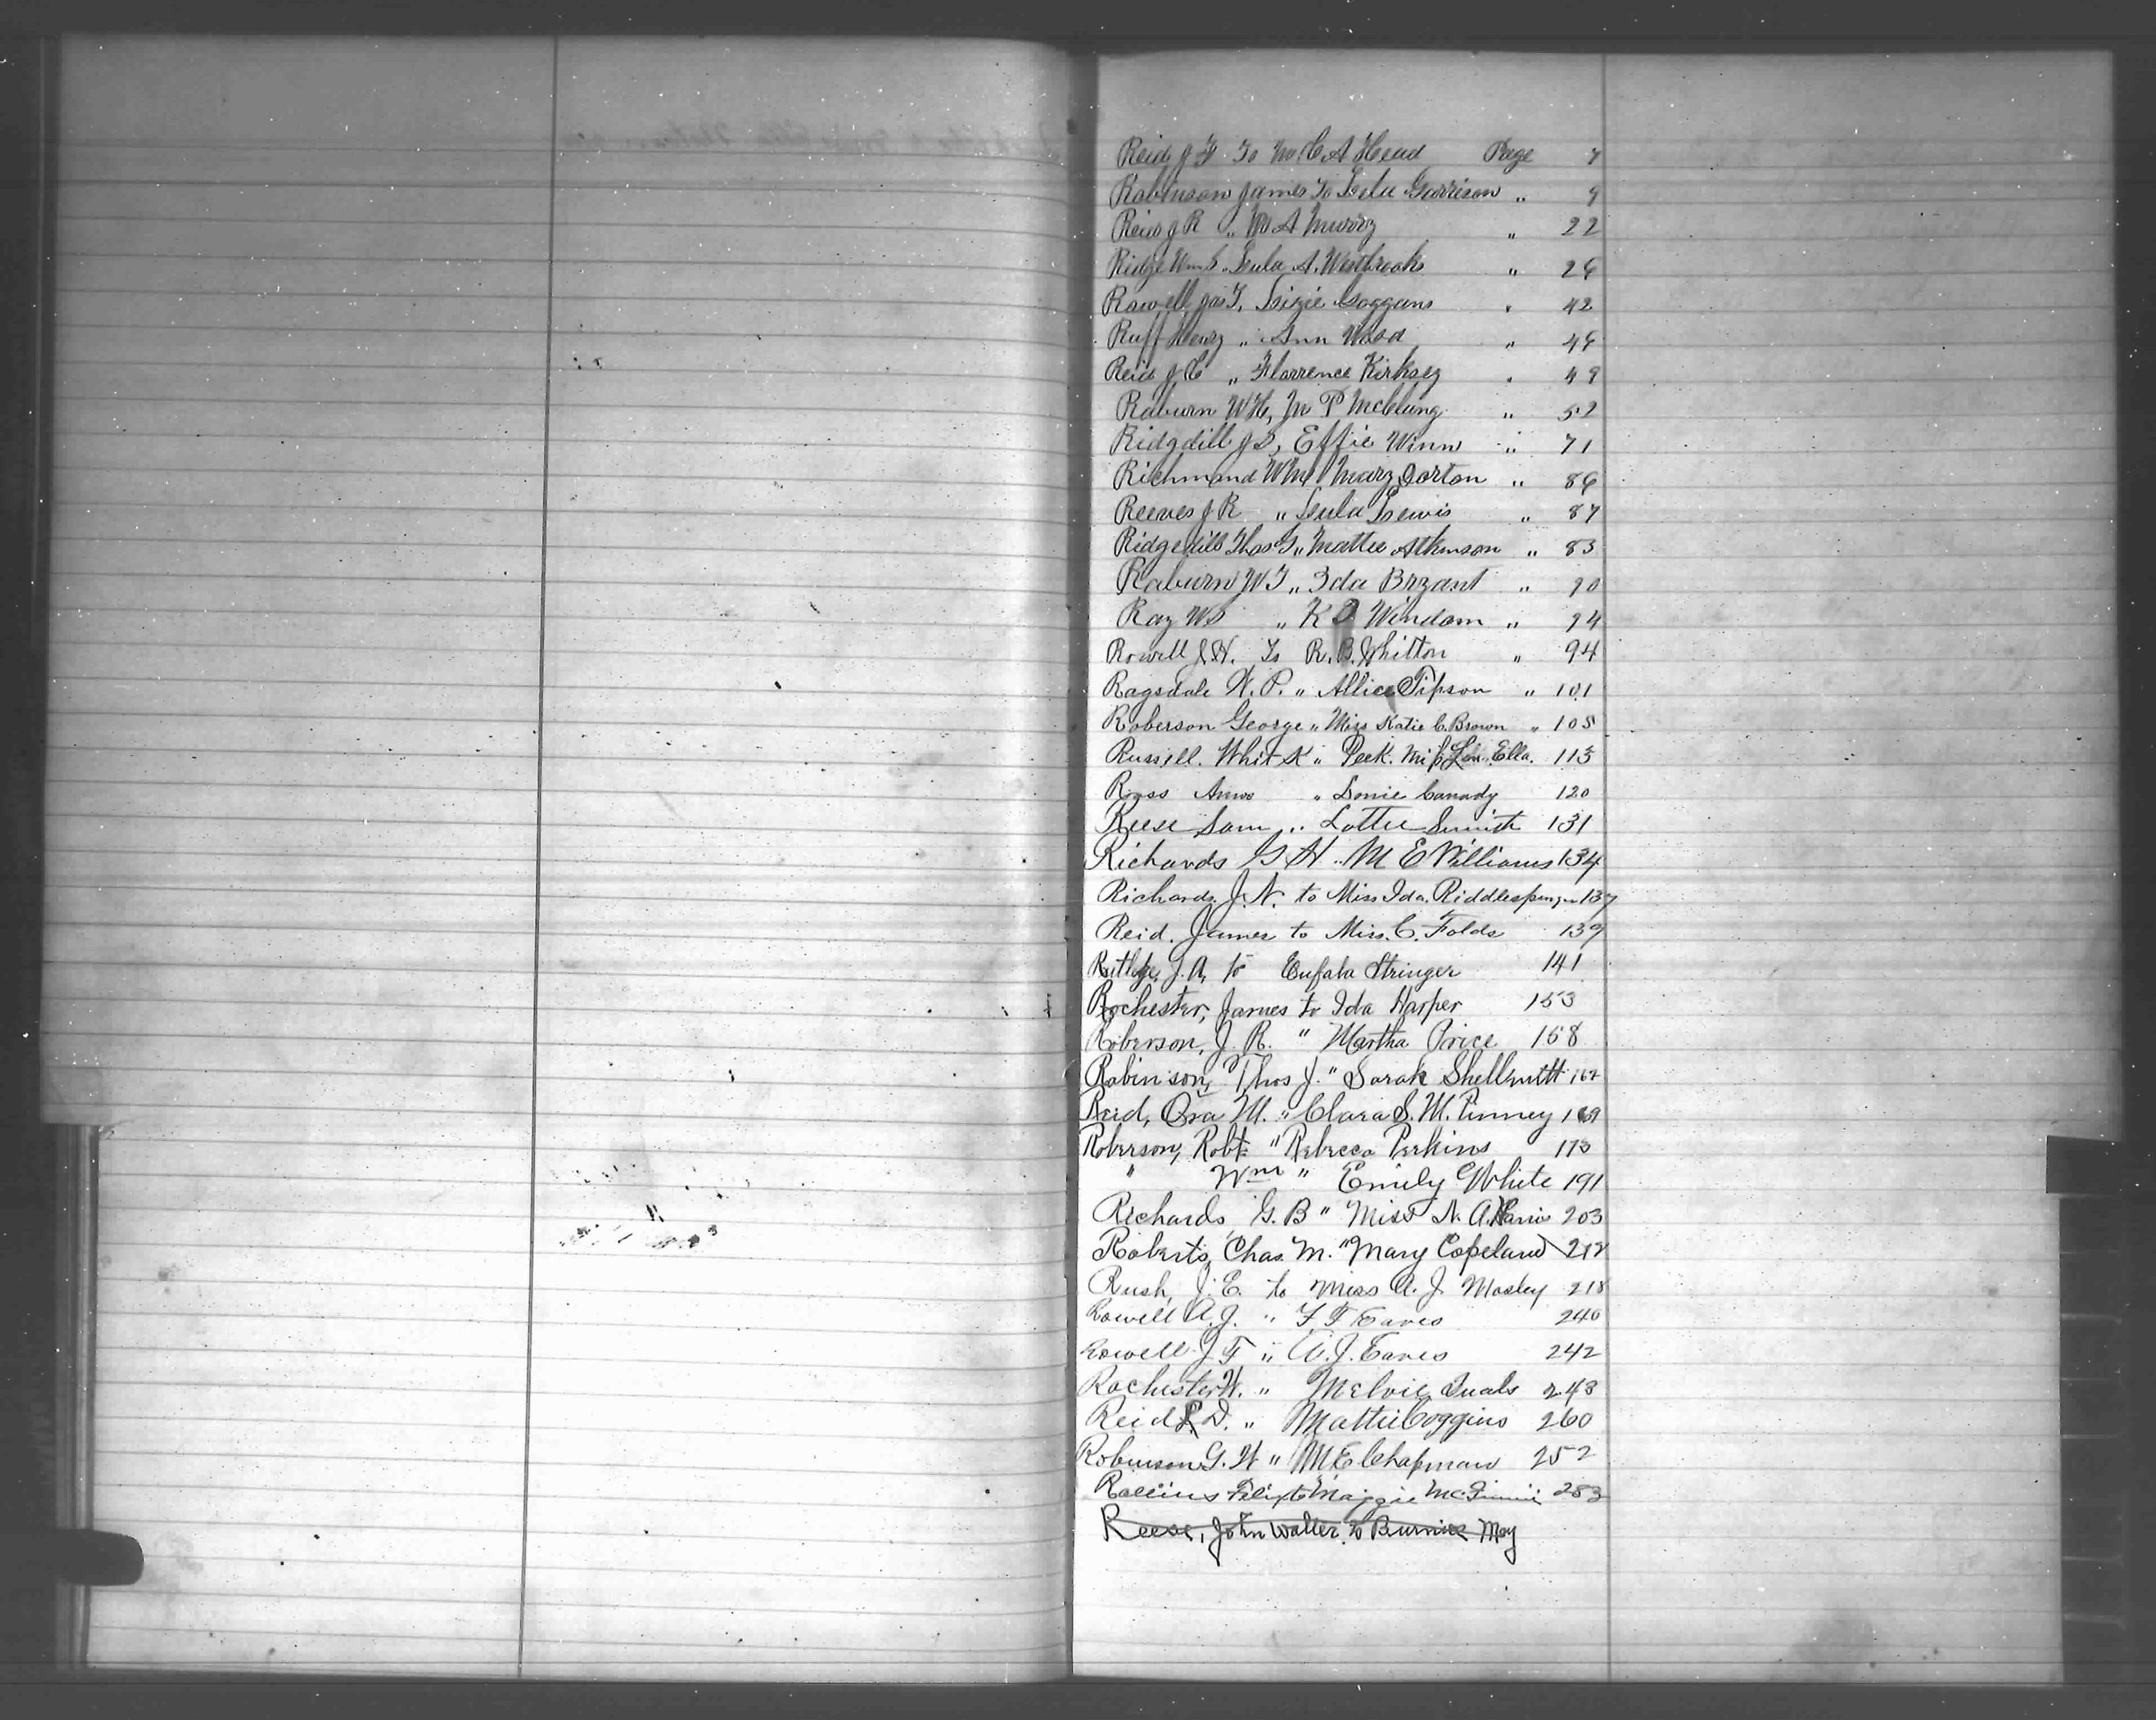 Reid J F To M C A Head Page 7
Robinson James To Lula Garrison " 9
Reid J R " M A Murry " 22
Ridge Wm S " Lula A. Westbrooks " 26
Rowell Jas T, Lizie Goggans " 42
Ruff Henry " Ann Wood " 46
Reid J C " Florrence Kirksey " 49
Raburn W H, M P McClung " 52
Ridgdill J S, Effie Winn " 71
Richmond Wm Mary Dorton " 86
Reeves J R " Lula Lewis " 87
Ridgdill Thos J " Mattie Atkinson " 83
Raburn W T " Ida Bryant " 90
Ray W S " K O Windam " 94
Rowell J. H. To R. B. Whitton " 94
Ragsdale W. P. " Allice Tipson " 101
Roberson George " Miss Katie C. Brown " 105
Russell. Whit K " Peek. Miss Lou Ella. 113
Ross Amos " Donie Canady 120
Reese Sam " Lottie Smith 131
Richards G H " M E Williams 134
Richards J. N. to Miss Ida Riddlesperger 137
Reid. James to Miss. C. Folds 139
Rutlege, J. A, to Eufala Stringer 141
Rochester, James to Ida Harper 153
Roberson, J. R. " Martha Price 158
Robinson, Thos J. " Sarah Shellnutt 162
Reid, Ora M. " Clara S. M. Pinney 169
Roberson, Robt " Rebecca Perkins 173
" Wm " Emily White 191
Richards G. B " Miss N. A. Harris 203
Roberts, Chas. M. " Mary Copeland 212
Rush, J. E. to Miss A. J. Mosley 218
Rowell A. J. " F F Eaves 240
Rowell J F " A. J. Eaves 242
Rochester W. " Melvie Quals 243
Reid R D. " Mattie Coggins 260
Robinson G. W " M E Chapman 252
Rollins Felix to Maggie McGinnis 283
Reese, John Walter to Burnice May